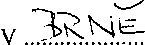 v BRNĚ